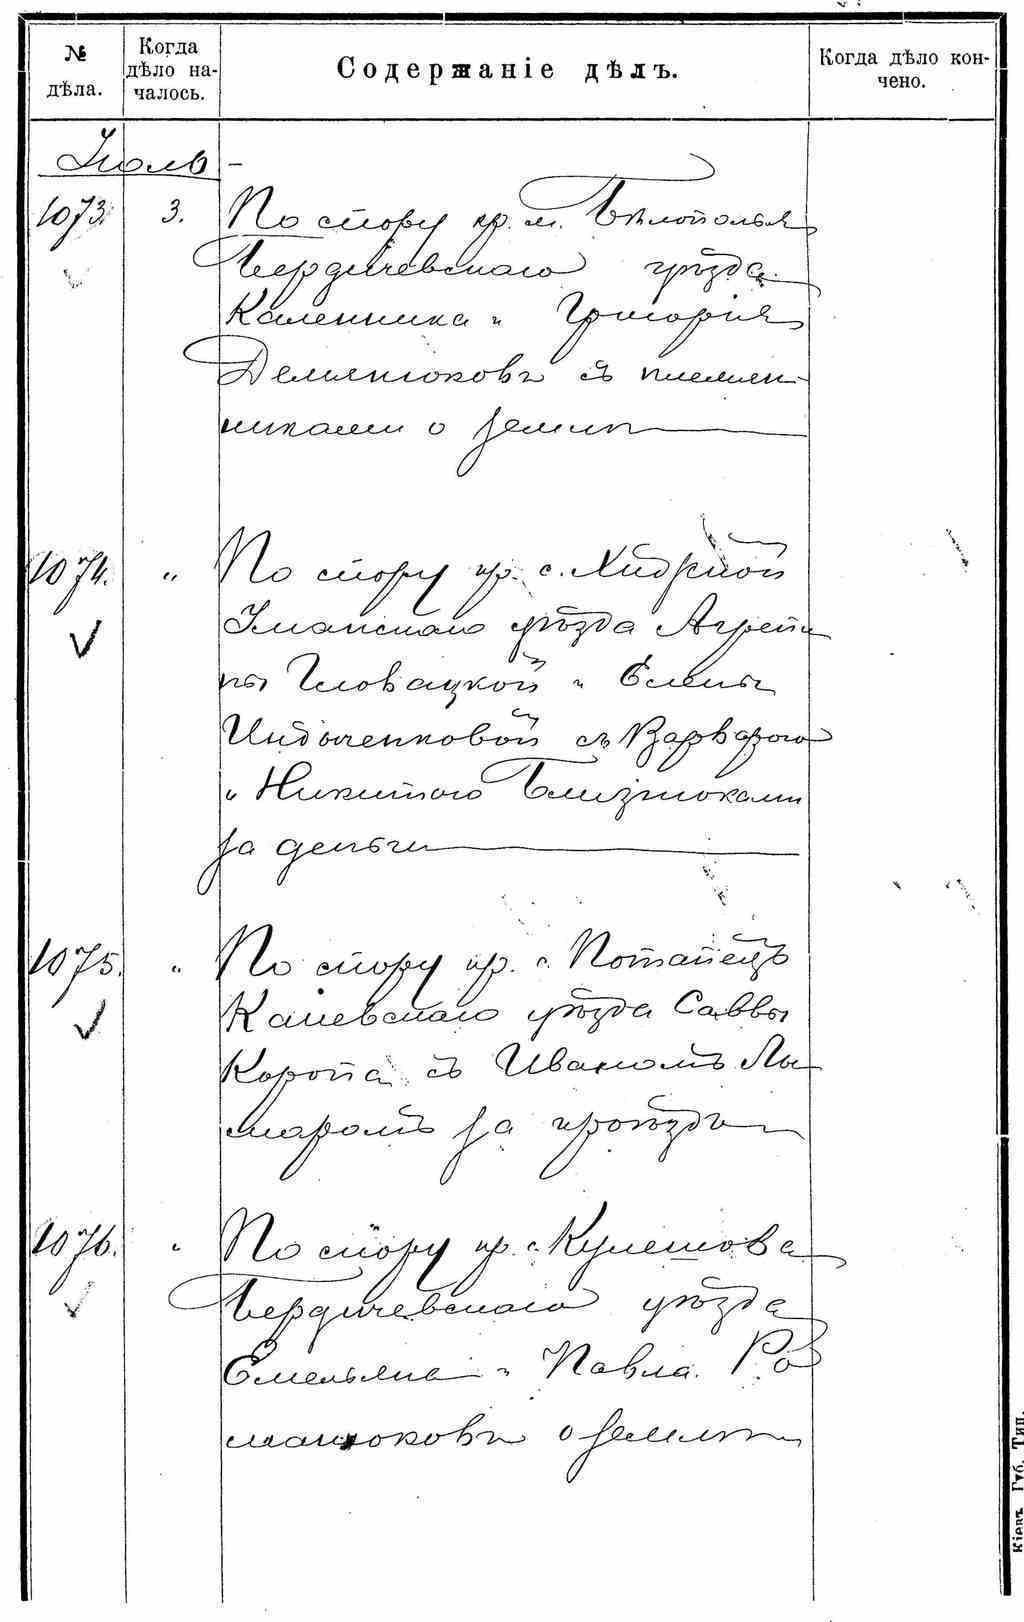 № дѣла.
Когда дѣло началось.
Содержаніе дѣлъ.
Когда дѣло кончено.
Іюль -
1073. 3. По спору кр. м. Бѣлополья
Бердичевскаго уѣзда
Каленника и Григорія
Демянюковъ съ племян-
никами о землѣ
1074. " По спору кр. с.
Уманскаго уѣзда Агрепи
ны Гловацкой и Елены
съ Варварою
и Никитою Близнюками
за деньги
1075. " По спору кр. с. Потапецъ
Каневскаго уѣзда Саввы
Коропа съ Иваномъ Лы
маромъ за проѣздъ
1076. " По спору кр. с. Кулешова
Бердичевскаго уѣзда
Емельяна и Павла Ро
манюковъ о землѣ
Кіевъ. Губ. Тип.